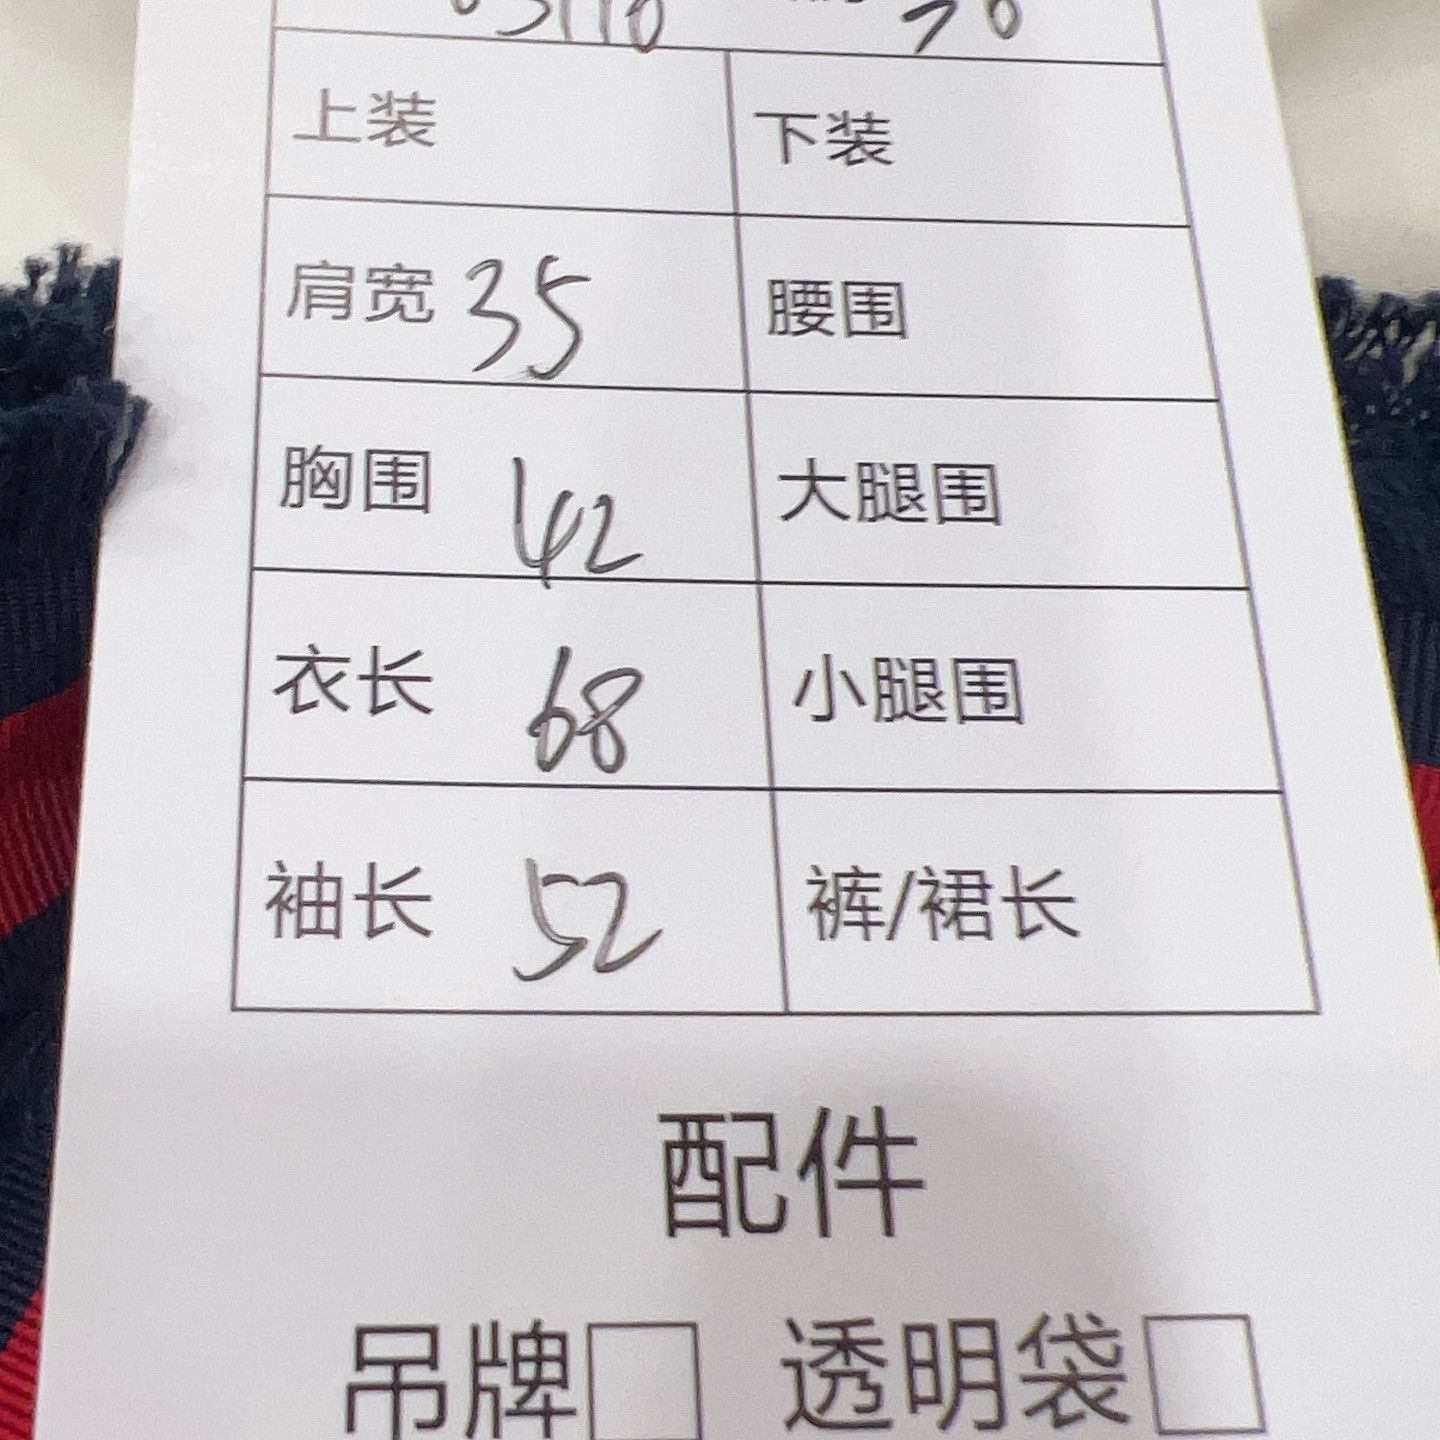 上装 下装
肩宽 35 腰围
胸围 42 大腿围
衣长 68 小腿围
袖长 52 裤/裙长
配件
吊牌□ 透明袋□